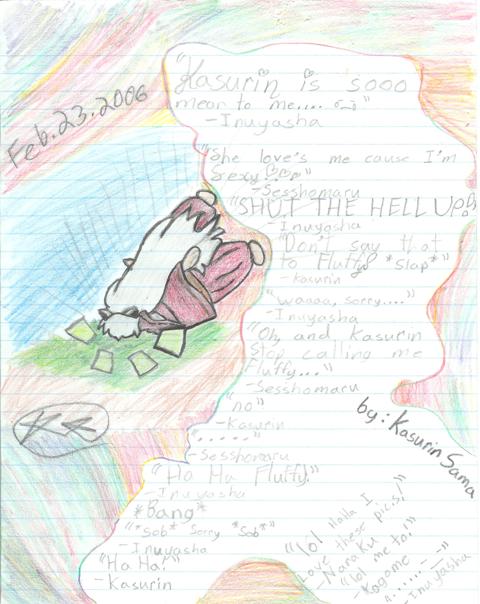 Feb.23.2006
"Kasurin is sooo
mean to me....
"
-Inuyasha
"She love's me cause I'm
Sexy!"
-Sesshomaru
"SHUT THE HELL UP!"
-Inuyasha
"Don't say that
to Fluffy! *Slap*"
-Kasurin
"waaaa, sorry...."
-Inuyasha
"Oh and Kasurin
Stop calling me
Fluffy..."
-Sesshomaru
"no"
-Kasurin
"....."
-Sesshomaru
"Ha Ha Fluffy!"
-Inuyasha
*Bang*
"*Sob* Sorry *Sob*"
-Inuyasha
"Ha Ha!"
-Kasurin
by: Kasurin Sama
"lol! HaHa I
Love these pics!"
-Naraku
"lol me to!"
-Kagome
"....... -_-"
-Inuyasha